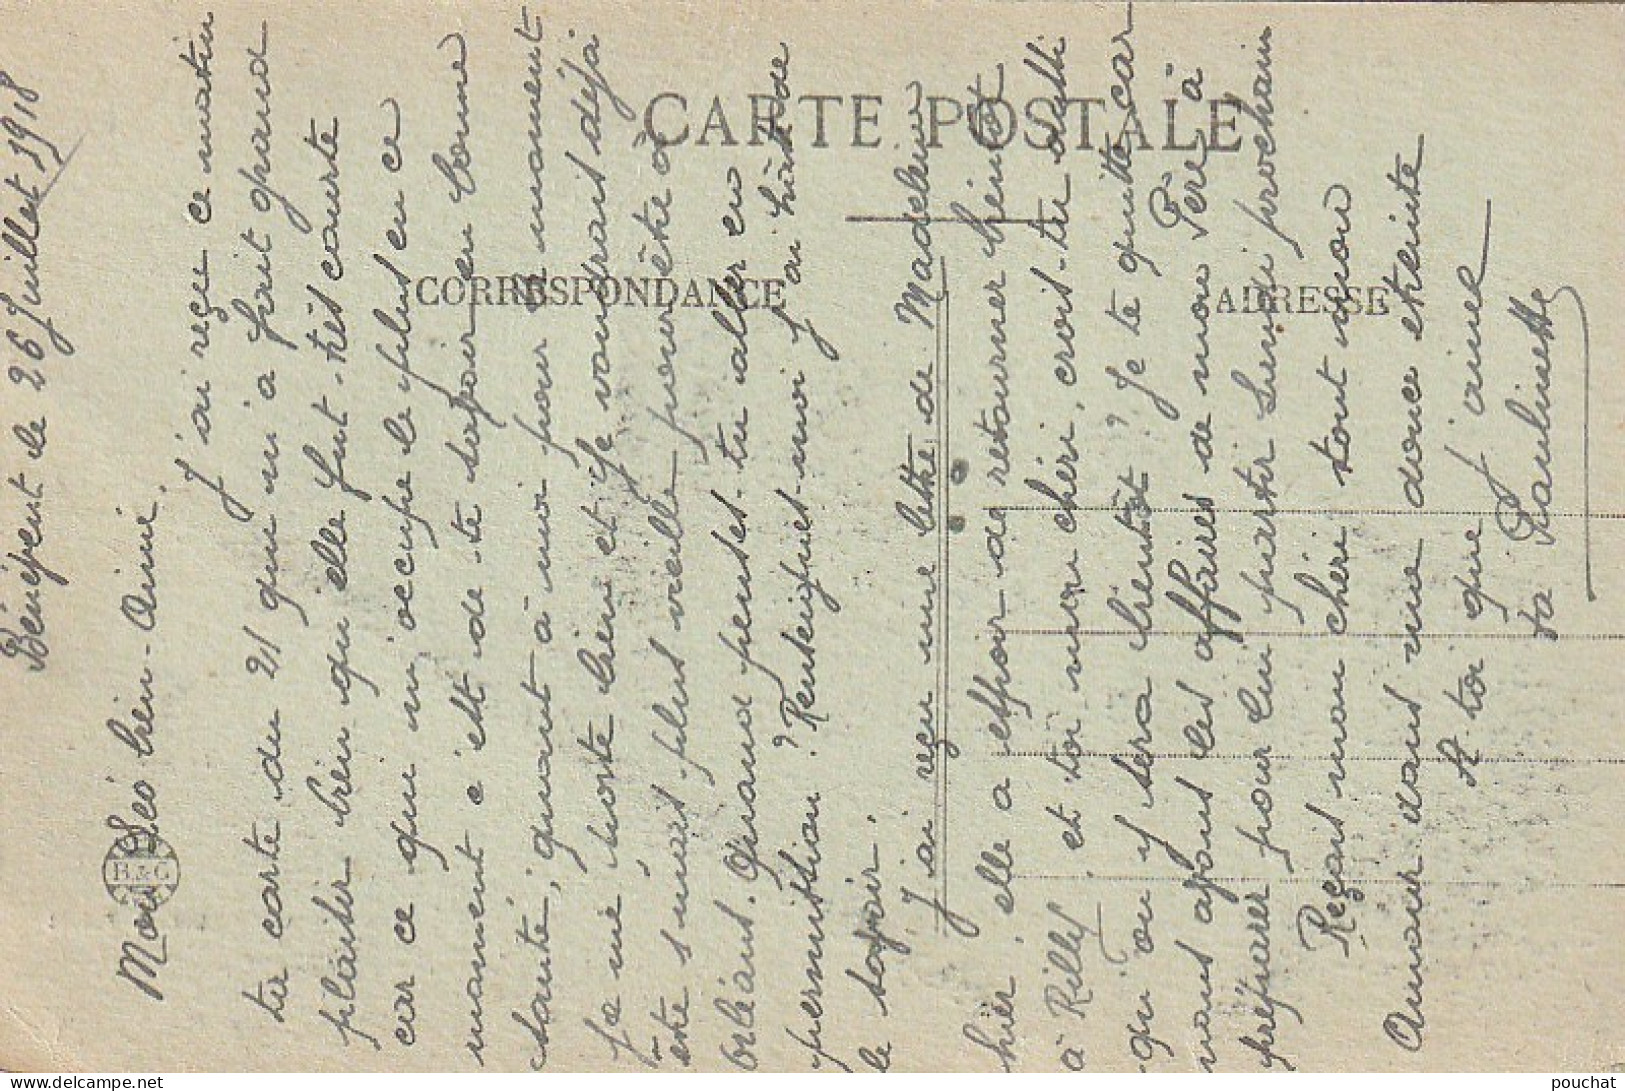 Bénépent le 26 Juillet 1918
Mon Léo bien-Aimé,
J'ai reçu ce matin
ta carte du 21 qui m'a fait grand
plaisir bien qu'elle fut très courte
car ce qui m'occupe le plus en ce
moment c'est de te savoir en bonne
santé, quant à moi pour le moment
je me porte bien et je voudrais déjà
être 1 mois plus vieille pour être à
Orléans. Quand penses-tu aller en
permission ? Renseignes-moi j'ai hâte de
le savoir.
J'ai reçu une lettre de Madeleine
hier, elle a espoir de retourner bientôt
à Rilly, et toi mon chéri, crois-tu aussi
qu'on y sera bientôt ? Je te quitte car
nous avons les affaires de mon Père à
préparer pour lui partir Lundi prochain
Reçois mon chéri tout mon
Amour dans une douce étreinte
A toi que j'aime
ta Paulinette
CARTE POSTALE
CORRESPONDANCE
ADRESSE
B & C
delcampe.net
pouchat